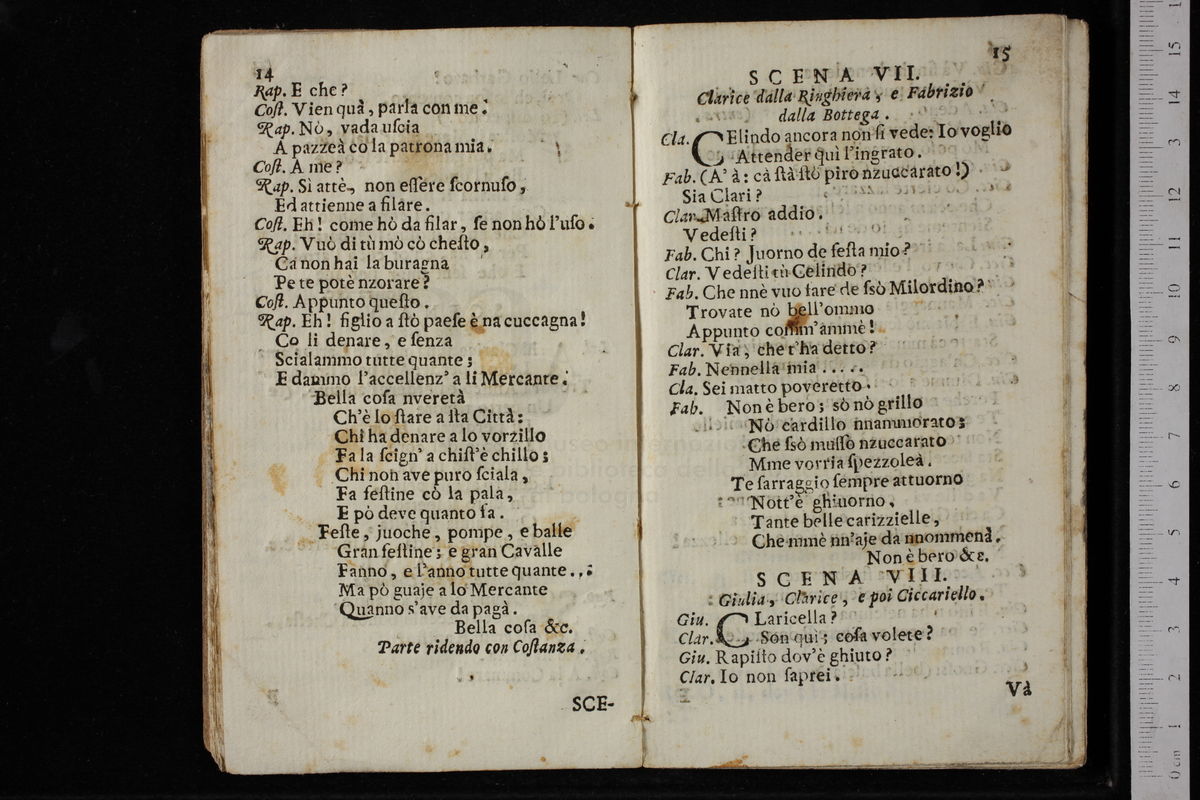 14
Rap. E che?
Coſt. Vien quà, parla con me.
Rap. Nò, vada uſcia
A pazzeà co la patrona mia.
Coſt. A me?
Rap. Sì attè, non eſſere ſcornuſo,
Ed attienne a filare.
Coſt. Eh! come hò da filar, ſe non hò l'uſo.
Rap. Vuò di tù mò cò cheſto,
Ca non hai la buragna
Pe te potè nzorare?
Coſt. Appunto queſto.
Rap. Eh! figlio a ſtò paeſe è na cuccagna!
Co li denare, e ſenza
Scialammo tutte quante;
E dammo l'accellenz' a li Mercante.
Bella coſa nveretà
Ch'è lo ſtare a ſta Città:
Chi ha denare a lo vorzillo
Fa la ſcign' a chiſt'è chillo;
Chi non ave puro ſciala,
Fa feſtine cò la pala,
E pò deve quanto fa.
Feſte, juoche, pompe, e balle
Gran feſtine; e gran Cavalle
Fanno, e l'anno tutte quante..:
Ma pò guaje a lo Mercante
Quanno s'ave da pagà.
Bella coſa &c.
Parte ridendo con Coſtanza.
SCE-
15
SCENA VII.
Clarice dalla Ringhiera, e Fabrizio
dalla Bottega.
Cla. CElindo ancora non ſi vede: Io voglio
Attender quì l'ingrato.
Fab. (A' à: cà ſtà ſtò pirò nzuccarato!)
Sia Clari?
Clar. Maſtro addio.
Vedeſti?
Fab. Chi? Juorno de feſta mio?
Clar. Vedeſti tù Celindo?
Fab. Che nnè vuo fare de ſsò Milordino?
Trovate nò bell'ommo
Appunto comm'ammè!
Clar. Via, che t'ha detto?
Fab. Nennella mia .....
Cla. Sei matto poveretto.
Fab. Non è bero; sò nò grillo
Nò cardillo nnammorato;
Che ſsò muſſò nzuccarato
Mme vorria ſpezzoleà.
Te ſarraggio ſempre attuorno
Nott'è ghiuorno,
Tante belle carizzielle,
Che mmè nn'aje da nnommenà.
Non è bero &c.
SCENA VIII.
Giulia, Clarice, e poi Ciccariello.
Giu. CLaricella?
Clar. Son quì; coſa volete?
Giu. Rapiſto dov'è ghiuto?
Clar. Io non ſaprei.
Và